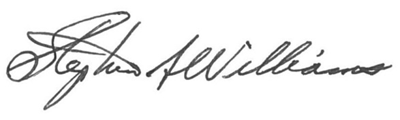 Stephen A Williams